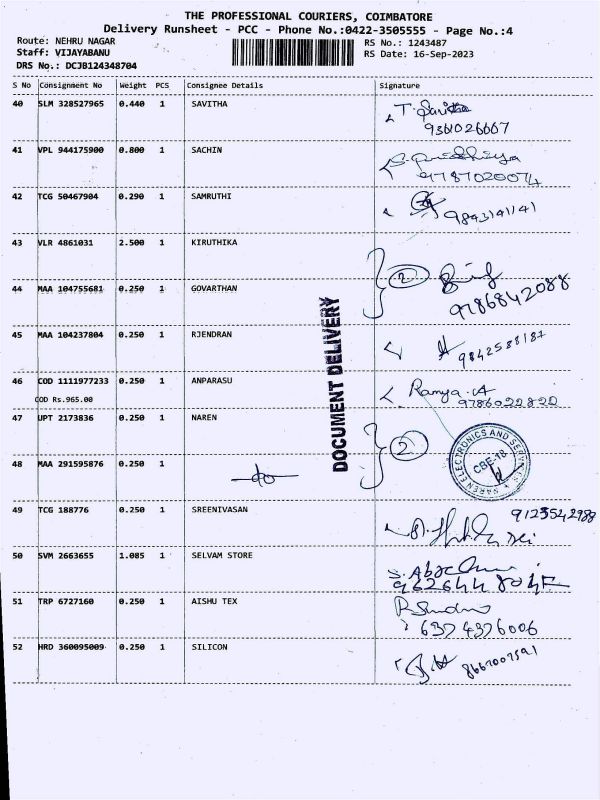 THE PROFESSIONAL COURIERS, COIMBATORE
Delivery Runsheet - PCC - Phone No.:0422-3505555 - Page No.:4
Route: NEHRU NAGAR RS No.: 1243487
Staff: VIJAYABANU RS Date: 16-Sep-2023
DRS No.: DCJB124348704
S No Consignment No Weight PCS Consignee Details Signature
40 SLM 328527965 0.440 1 SAVITHA T. Savitha
9361026667
41 VPL 944175900 0.800 1 SACHIN
9787020074
42 TCG 50467904 0.290 1 SAMRUTHI 9843141141
43 VLR 4861031 2.500 1 KIRUTHIKA
2
44 MAA 104755681 0.250 1 GOVARTHAN
9786842088
45 MAA 104237804 0.250 1 RJENDRAN 9842588187
46 COD 1111977233 0.250 1 ANPARASU Ramya.A
COD Rs.965.00 9786022820
DOCUMENT DELIVERY
47 JPT 2173836 0.250 1 NAREN
2
NAREN ELECTRONICS AND SERVICES
CBE-18
48 MAA 291595876 0.250 1 do
49 TCG 188776 0.250 1 SREENIVASAN 9123542988
50 SVM 2663655 1.085 1 SELVAM STORE
51 TRP 6727160 0.250 1 AISHU TEX
6374376006
52 HRD 360095009 0.250 1 SILICON 8667007591